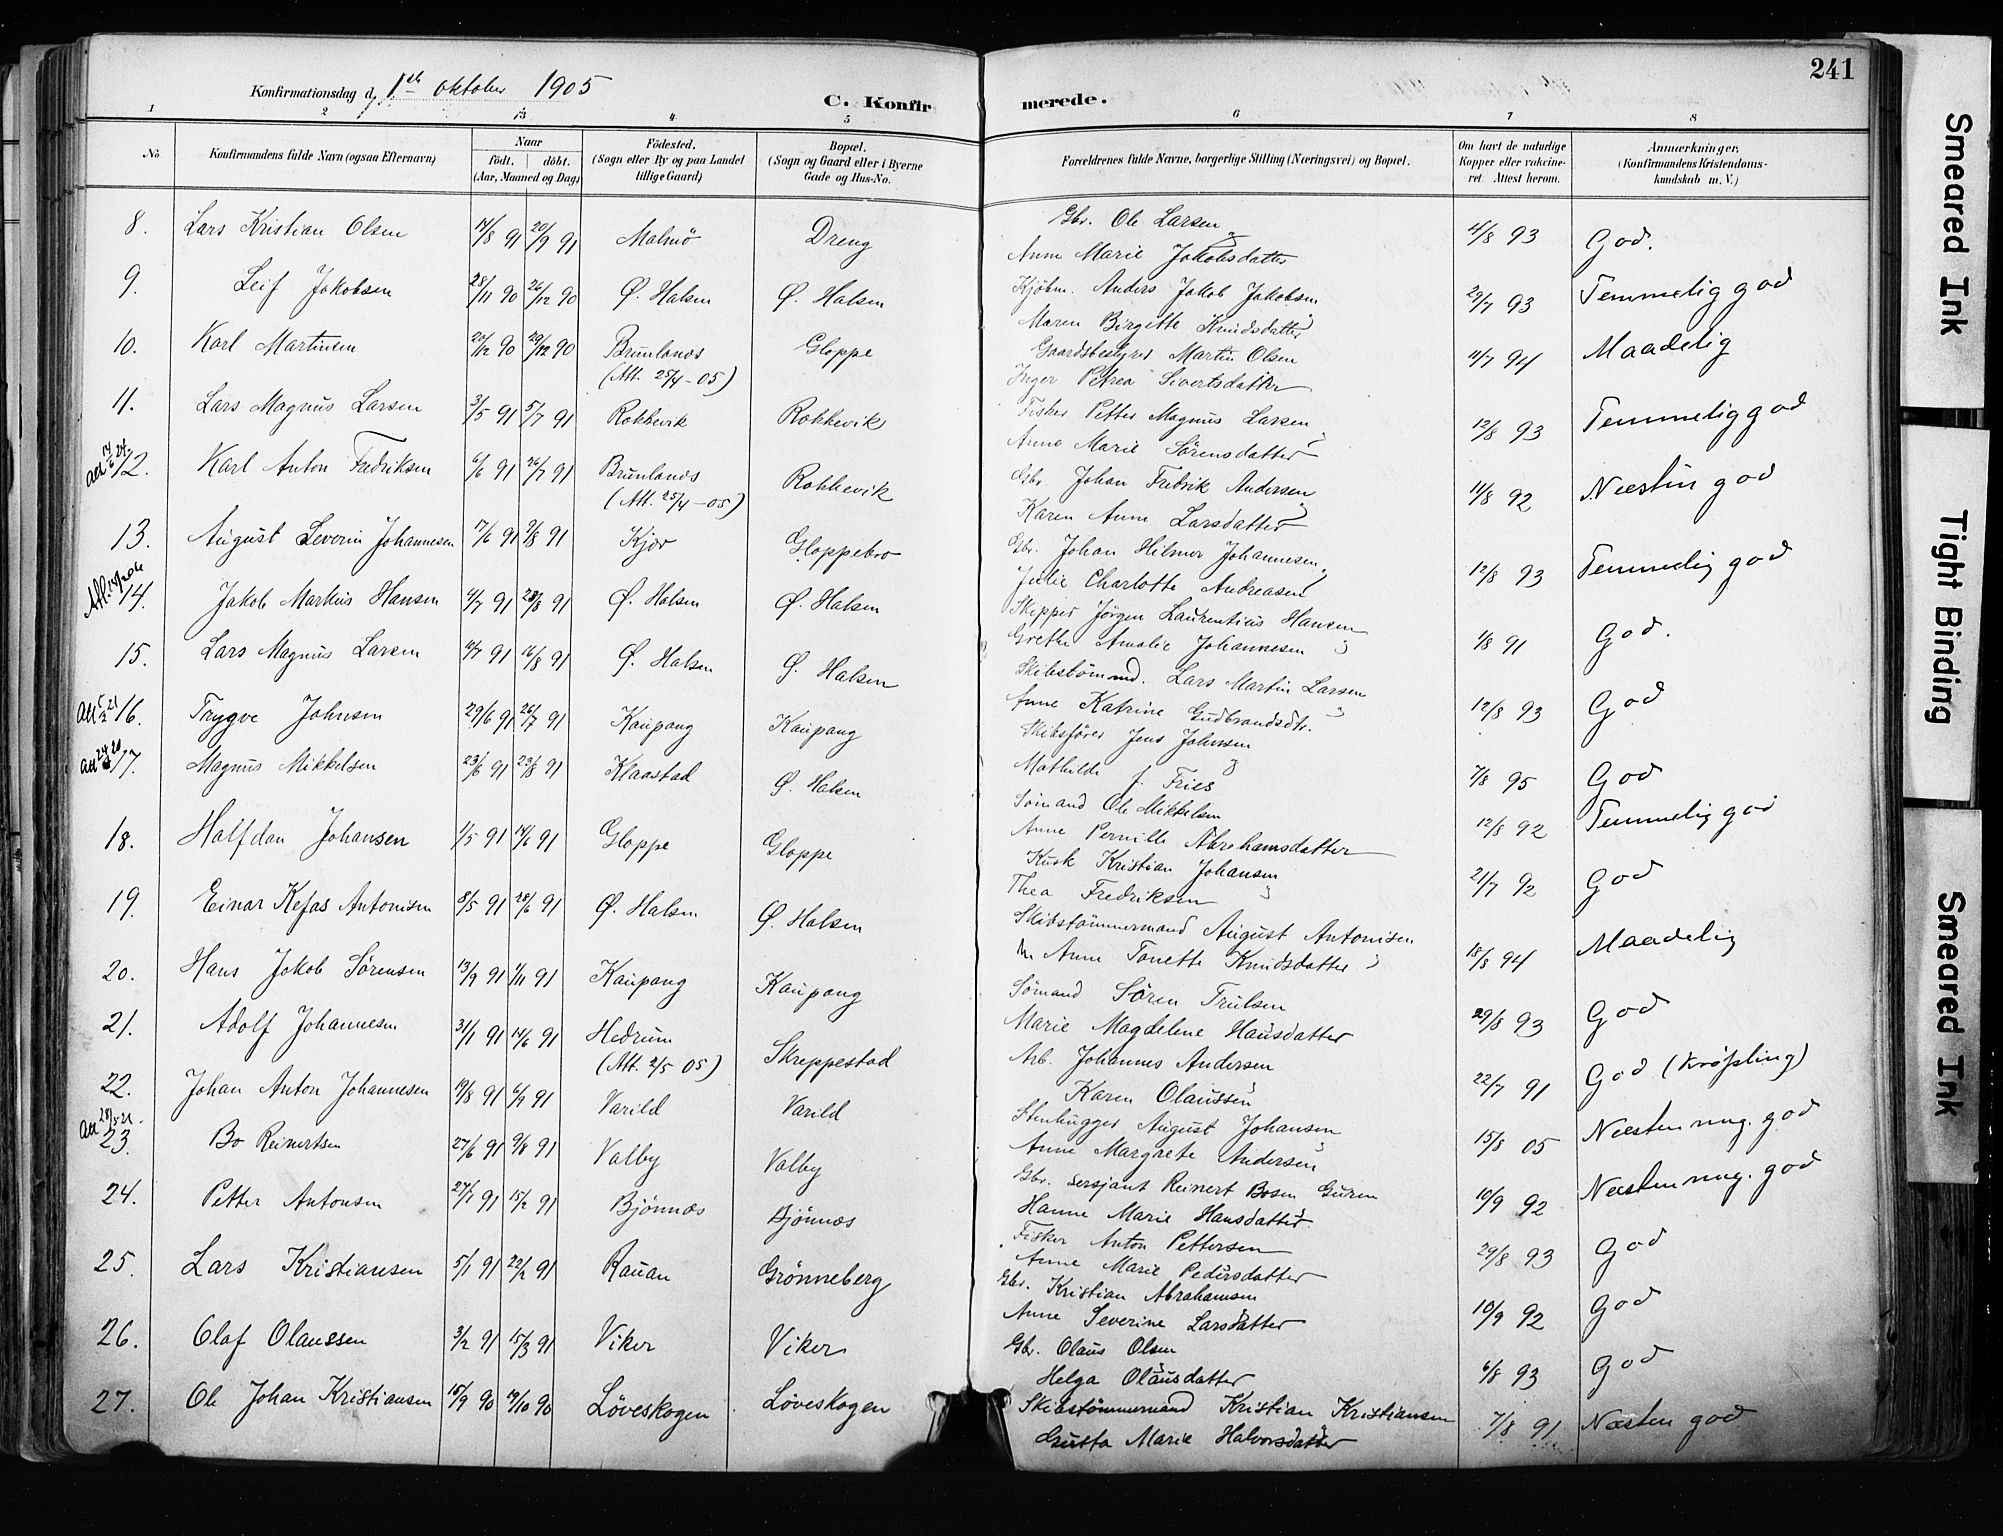 241
Konfirmationsdag d. 1ste oktober 1905
C. Konfirmerede.
1 2 3 4 5 6 7 8
No.
Konfirmandens fulde Navn (ogsaa Efternavn)
Naar
födt. döbt.
(Aar, Maaned og Dag)
Födested.
(Sogn eller By og paa Landet
tillige Gaard)
Bopæl.
(Sogn og Gaard eller i Byerne
Gade og Hus-No.
Forældrenes fulde Navne, borgerlige Stilling (Næringsvei) og Bopæl.
Om havt de naturlige
Kopper eller vakcine-
ret. Attest herom.
Anmærkninger.
(Konfirmandens Kristendoms-
kundskab m. V.)
8. Lars Kristian Olsen 14/8 91 20/9 91 Malmö Dreng Gbr. Ole Larsen 4/8 93 God.
Anne Marie Jakobsdatter
9. Leif Jakobsen 28/11 90 26/12 90 Ø. Halsen Ø. Halsen Kjöbm. Anders Jakob Jakobsen 29/7 93 Temmelig god
Maren Birgette Knudsdatter
10. Karl Martinsen 90 29/12 90 Brunlanæs Gloppe Gaardsbestyrer Martin Olsen 11/7 94 Maadelig
(Att. 25/4-05) Inger Petrea Sivertsdatter
11. Lars Magnus Larsen 3/5 91 5/7 91 Rakkevik Rakkevik Fisker Petter Magnus Larsen 12/8 93 Temmelig god
Anne Marie Sörensdatter
12. Karl Anton Fredriksen 6/6 91 26/7 91 Brunlanæs Rakkevik Gbr. Johan Fredrik Andersen 11/8 92 Næsten god
(Att. 25/4-05) Karen Anne Larsdatter
13. August Severin Johannesen 17/6 91 9/8 91 Kjør Gloppebro Gbr. Johan Hilmer Johannesen 12/8 93 Temmelig god
Julie Charlotte Andreasen
14. Jakob Markus Hansen 4/7 91 91 Ø. Halsen Ø. Halsen Skipper Jörgen Laurentius Hansen 1/8 91 God.
Grethe Amalie Johannesen
15. Lars Magnus Larsen 91 16/8 91 Ø. Halsen Ø. Halsen Skibstömmd. Lars Martin Larsen 12/8 93 God
Anne Katrine Gudbrandsdtr.
16. Trygve Johnsen 29/6 91 26/7 91 Kaupang Kaupang Skibsförer Jens Johnsen 7/8 95 God
Mathilde f. Fries
17. Magnus Mikkelsen 23/6 91 23/8 91 Klaastad Ø. Halsen Sömand Ole Mikkelsen 12/8 92 Temmelig god
Anne Pernille Abrahamsdatter
18. Halfdan Johansen 1/5 91 14/6 91 Gloppe Gloppe Kusk Kristian Johansen 21/7 92 God
Thea Fredriksen
19. Einar Kefas Antonisen 8/5 91 28/6 91 Ø. Halsen Ø. Halsen Skibstömmermand August Antonisen 18/8 94 Maadelig
Anne Tonette Knudsdatter
20. Hans Jakob Sørensen 13/9 91 1/11 91 Kaupang Kaupang Sömand Sören Trulsen 29/8 93 God
Marie Magdelene Hansdatter
21. Adolf Johannesen 31/1 91 14/6 91 Hedrum Skreppestad Arb. Johannes Andersen 22/7 91 God (Krøpling)
(Att. 2/5 05) Karen Olaussen
22. Johan Anton Johannesen 19/8 91 6/9 91 Varild Varild Stenhugger August Johansen 15/8 05 Næsten mug. god
Anne Margrete Andersen
23. Bo Reinertsen 27/6 91 9/8 91 Valby Valby Gbr. sersjant Reinert Bosen Guren 10/9 92 Næsten mug. god
Hanne Marie Hansdatter
24. Petter Antonsen 27/1 91 15/2 91 Bjönnæs Bjönnæs Fisker Anton Pettersen 29/8 93 God
Anne Marie Pedersdatter
25. Lars Kristiansen 5/1 91 22/2 91 Rauan Grönneberg Gbr. Kristian Abrahamsen 10/9 92 God
Anne Severine Larsdatter
26. Olaf Olaussen 3/2 91 15/3 91 Viker Viker Gbr. Olaus Olsen 6/8 93 God
Helga Olausdatter
27. Ole Johan Kristiansen 15/9 90 19/10 90 Löveskogen Löveskogen Skibstömmermand Kristian Kristiansen 7/8 91 Næsten god
Gusta Marie Halvorsdatter
Smeared Ink
Tight Binding
Smeared Ink